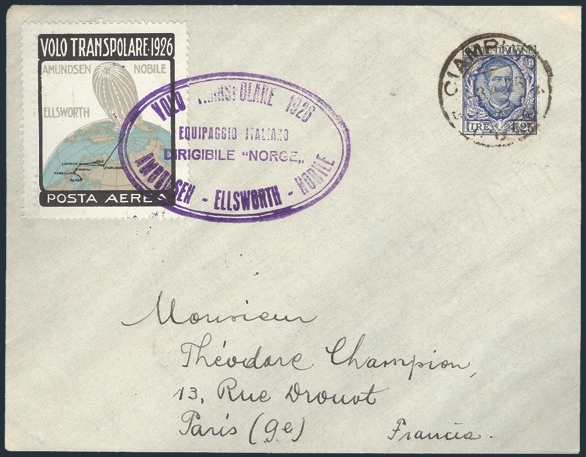 VOLO TRANSPOLARE 1926
AMUNDSEN NOBILE
ELLSWORTH
POSTA AEREA
VOLO TRANSPOLARE 1926
EQUIPAGGIO ITALIANO
DIRIGIBILE "NORGE„
AMUNDSEN - ELLSWORTH - NOBILE
CIAMPINO
LIRE 1,25
Monsieur
Théodore Champion,
13, Rue Drouot
Paris (9e) Francia.